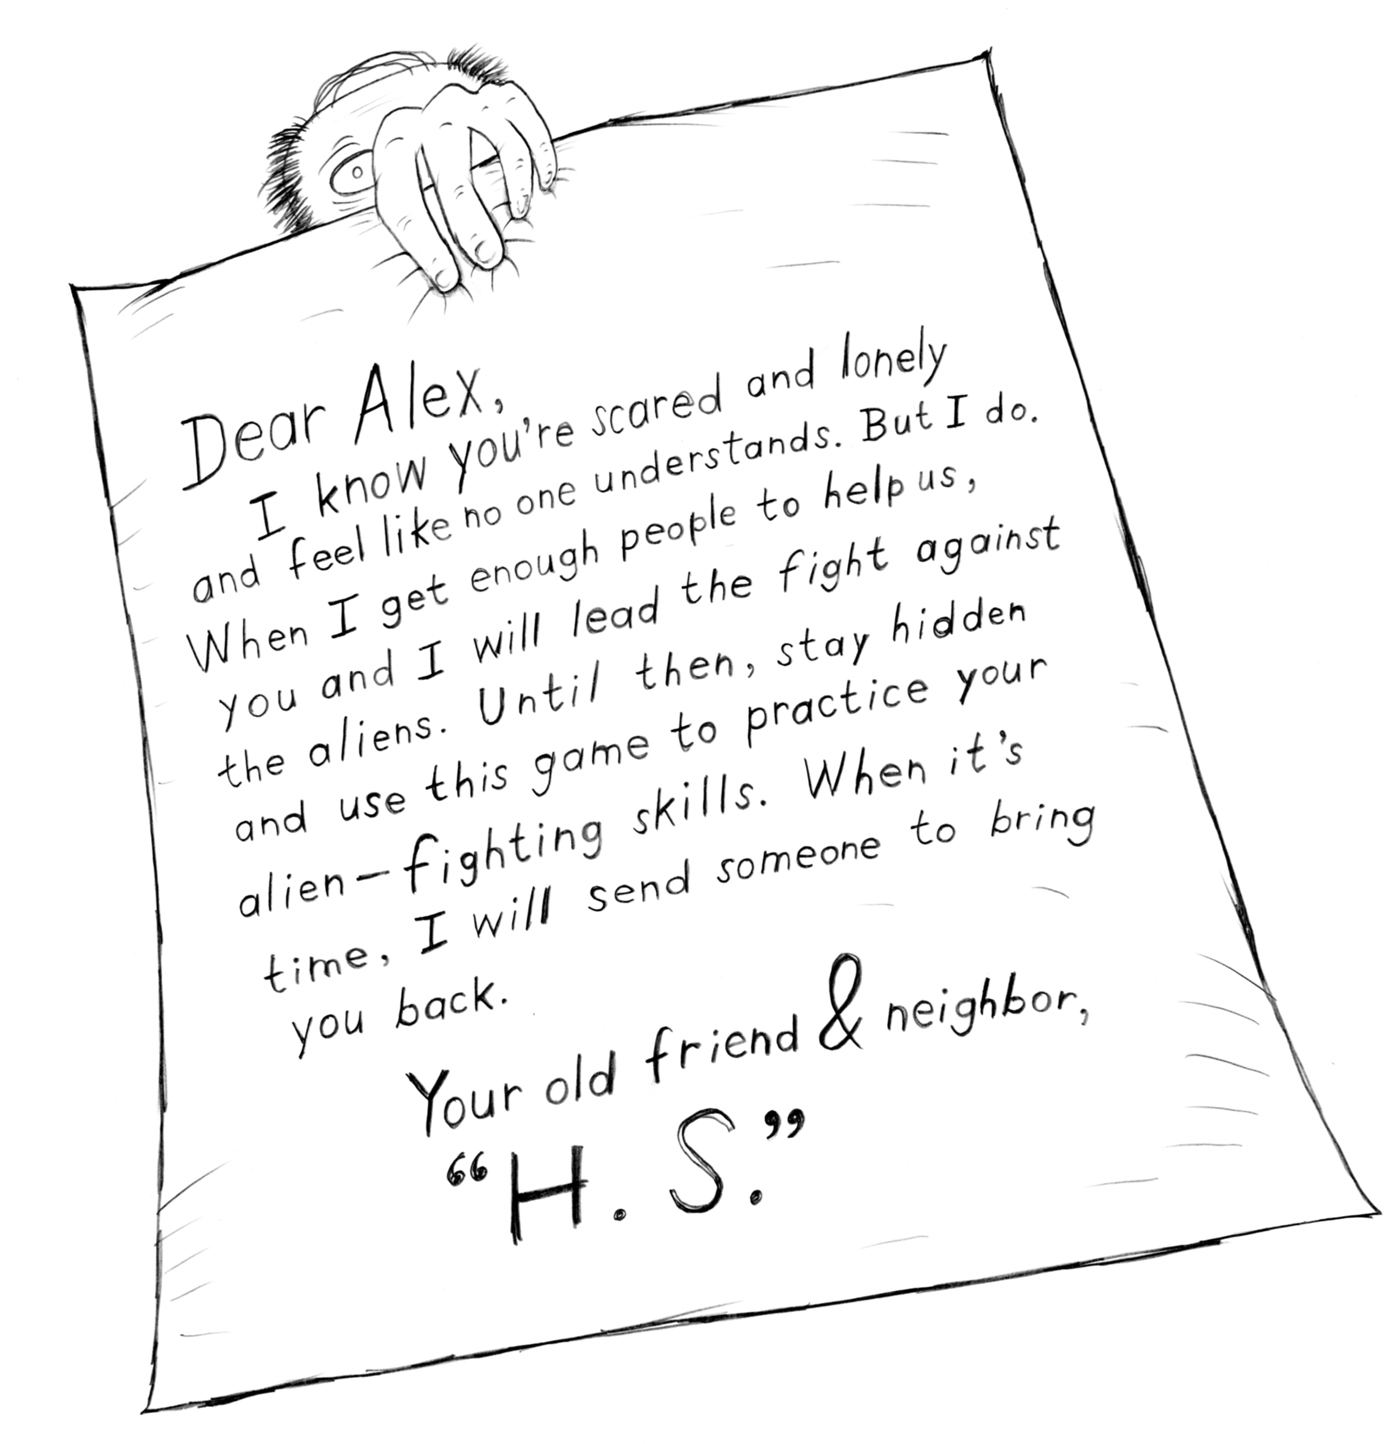 Dear Alex,
I know you're scared and lonely
and feel like no one understands. But I do.
When I get enough people to help us,
you and I will lead the fight against
the aliens. Until then, stay hidden
and use this game to practice your
alien-fighting skills. When it's
time, I will send someone to bring
you back.
Your old friend & neighbor,
“H. S.”